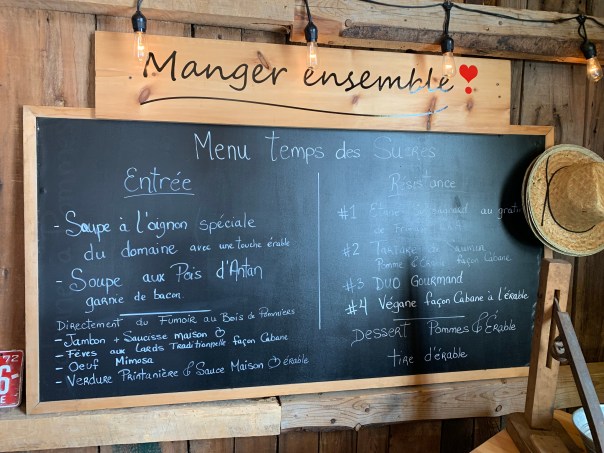 Manger ensemble
Menu Temps des Sucres
Entrée
- Soupe à l'oignon spéciale
du domaine avec une touche érable
- Soupe aux Pois d'Antan
garnie de bacon
Directement du Fumoir au Bois de Pommiers
- Jambon + Saucisse maison
- Fèves aux Lards Traditionnelle façon Cabane
- Oeuf Mimosa
- Verdure Printanière & Sauce Maison érable
Résistance
#1 au gratin
de
#2 Tartare de Saumon
Pomme façon Cabane
#3 Duo Gourmand
#4 Végane façon Cabane à l'érable
Dessert Pommes & Érable
Tire d'érable
72
6